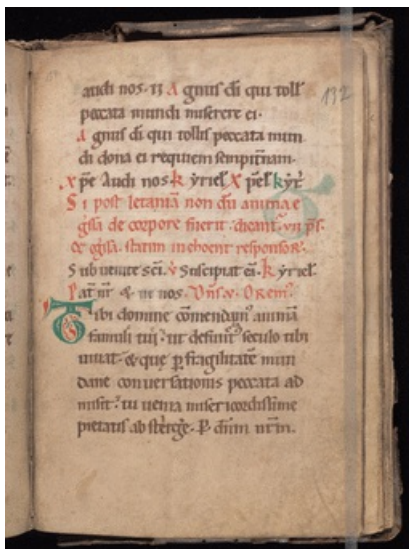 audi nos. Agnus di qui toll
peccata mundi miserere ei.
Agnus di qui tollis peccata mun
di dona ei requiem sempitnam.
xpe Audi nos kyriel Xpel kyr
Si post letaniā non dū anima e
de corpore fuerit dicant
statim inchoent responsor.
Subuenite sci. v Suscipiat kyriel
Pat nr & ne nos. Dns v. Orem
Tibi domine cōmendam animā
famuli tui ut defunct seculo tibi
uiuat. & que p fragilitatē mun
dane conuersationis peccata ad
misit. tu uenia misericordissime
pietatis absterge. P dnm nrm.
132